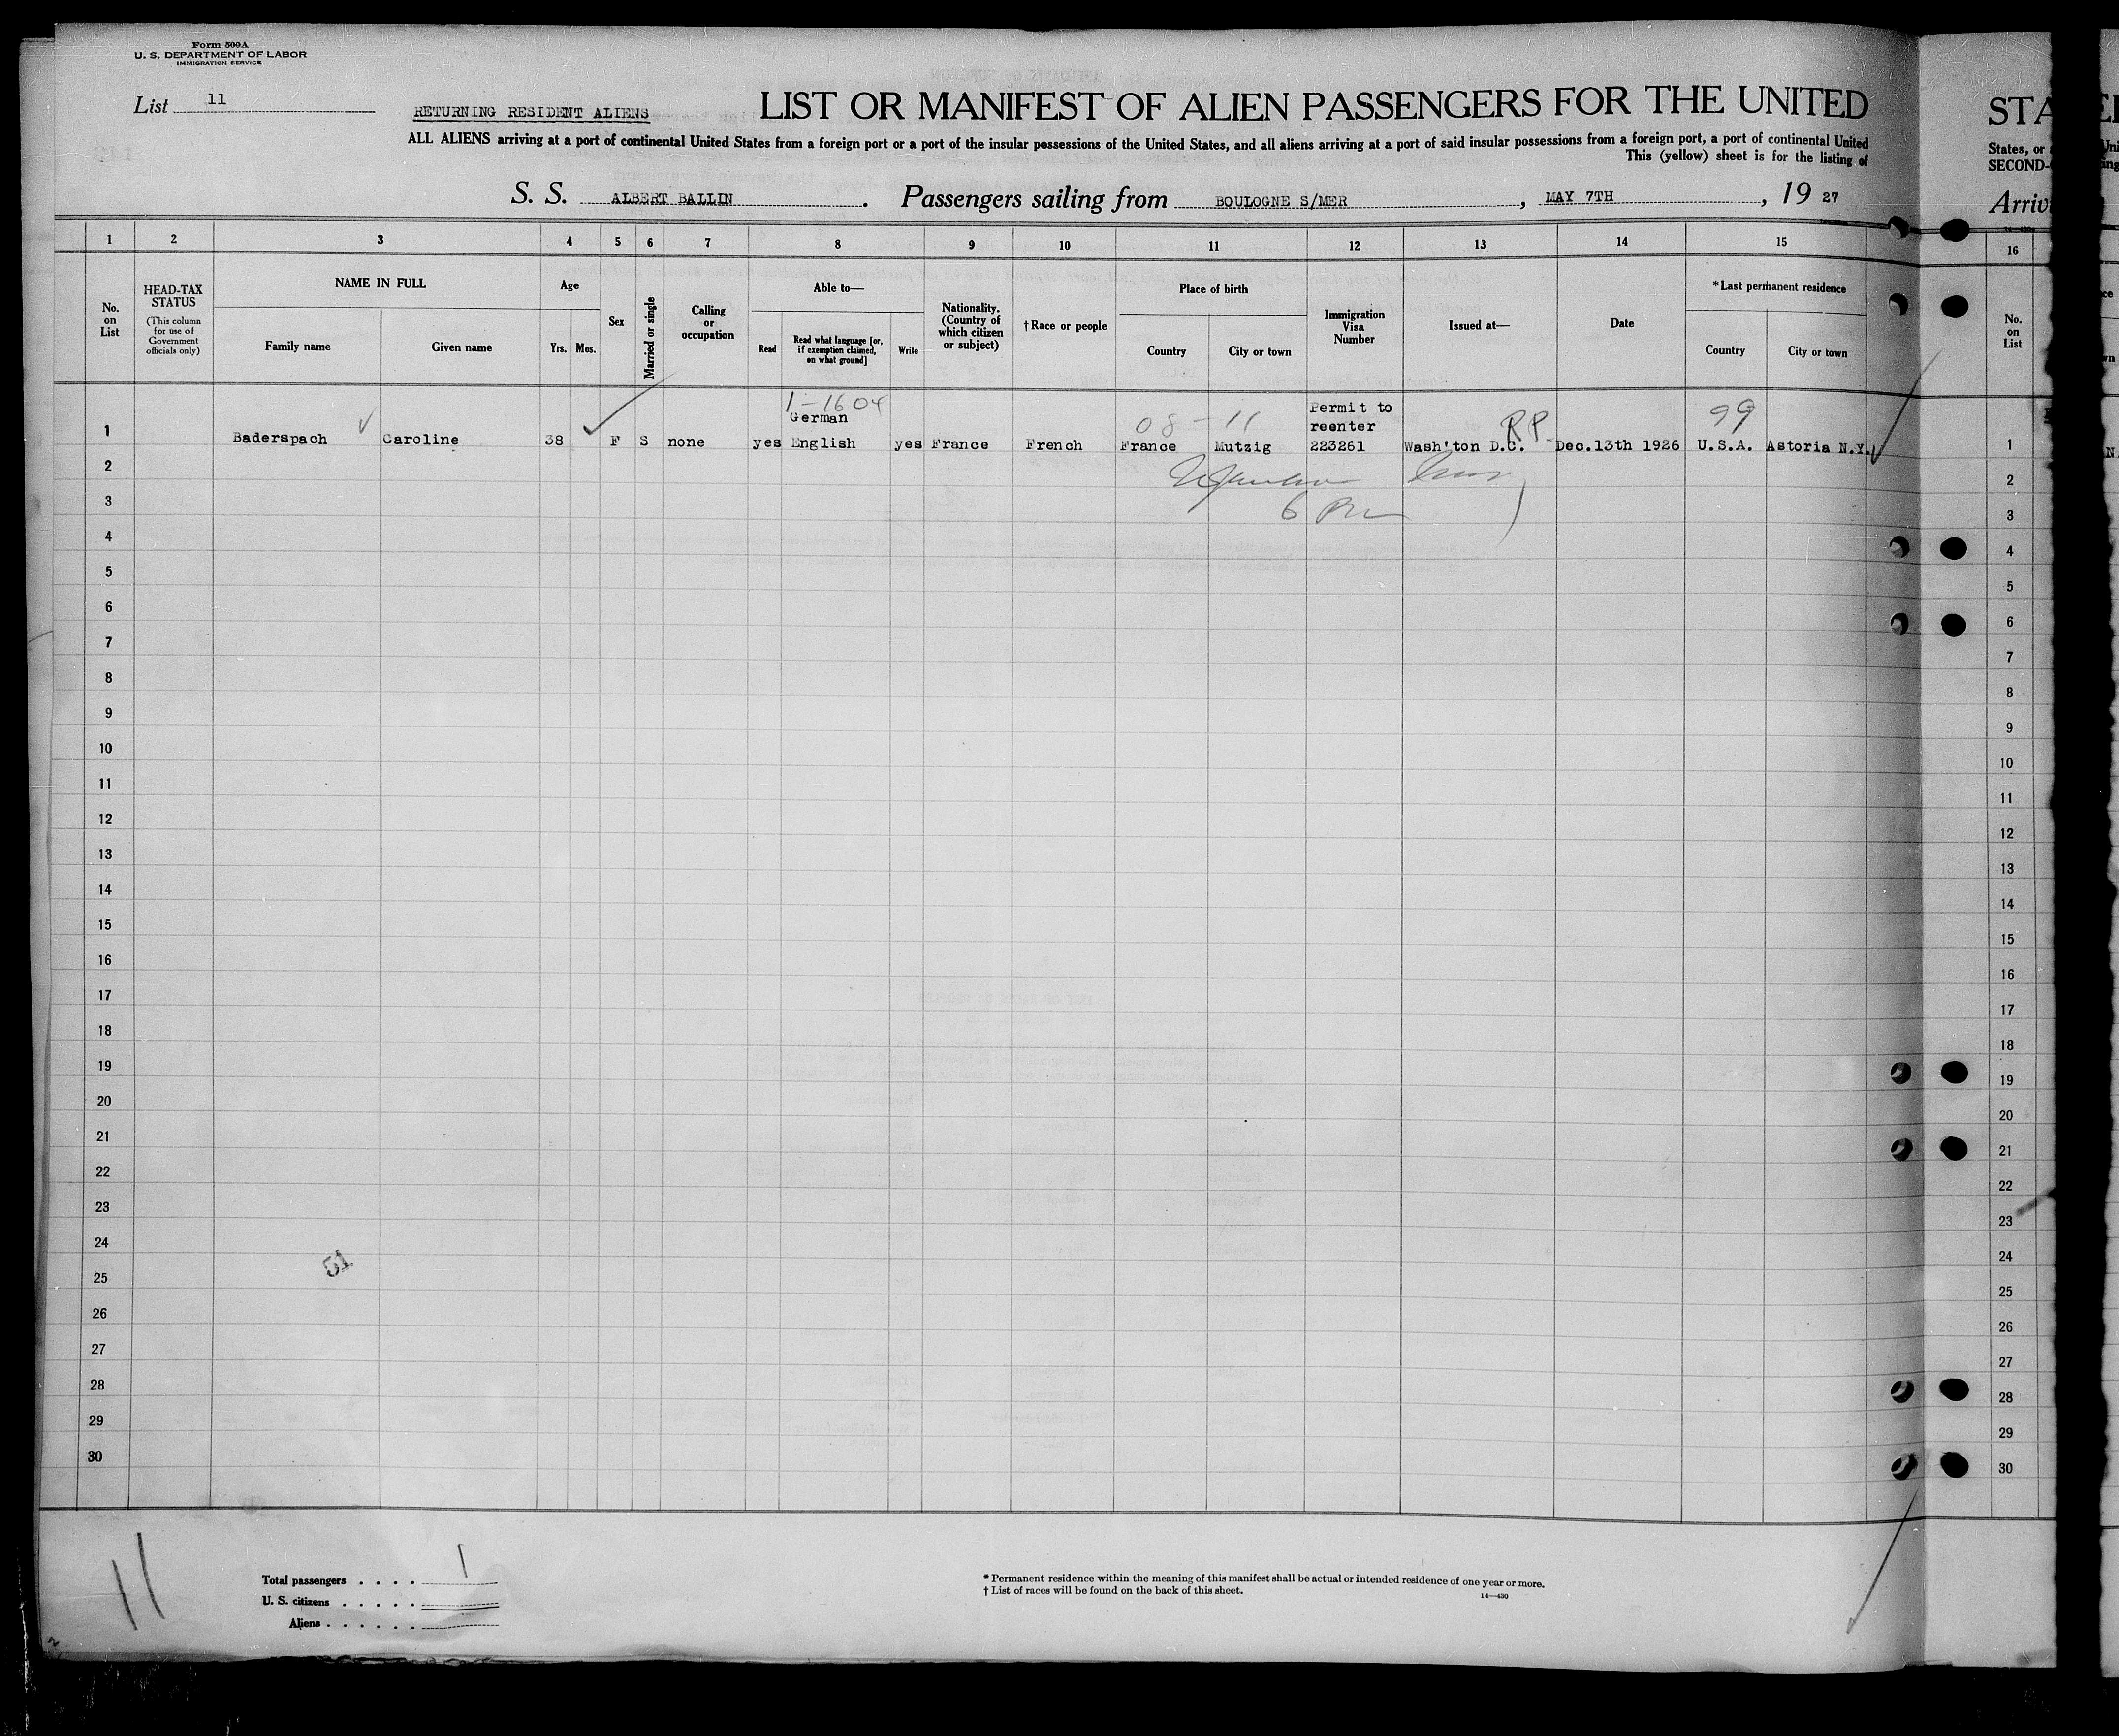 Form 500A
U. S. DEPARTMENT OF LABOR
IMMIGRATION SERVICE
List 11
RETURNING RESIDENT ALIENS
LIST OR MANIFEST OF ALIEN PASSENGERS FOR THE UNITED
ALL ALIENS arriving at a port of continental United States from a foreign port or a part of the insular possessions of the United States, and all aliens arriving at a port of said insular possessions from a foreign port, a port of continental United
This (yellow) sheet is for the listing of
S. S. ALBERT BALLIN . Passengers sailing from BOULOGNE S/MER , MAY 7TH , 19 27
STA
States, or
SECOND-
Arriv
1 2 3 4 5 6 7 8 9 10 11 12 13 14 15 16
No. on List
HEAD-TAX STATUS
(This column for use of Government officials only)
NAME IN FULL
Family name
Given name
Age
Yrs. Mos.
Sex
Married or single
Calling or occupation
Able to—
Read
Read what language [or, if exemption claimed, on what ground]
Write
Nationality. (Country of which citizen or subject)
†Race or people
Place of birth
Country
City or town
Immigration Visa Number
Issued at—
Date
*Last permanent residence
Country
City or town
No. on List
1-1604
08-11
RP.
99
1 Baderspach Caroline 38 F S none yes German English yes France French France Mutzig Permit to reenter 223261 Wash'ton D.C. Dec.13th 1926 U.S.A. Astoria N.Y. 1
2 2
6
3 3
4 4
5 5
6 6
7 7
8 8
9 9
10 10
11 11
12 12
13 13
14 14
15 15
16 16
17 17
18 18
19 19
20 20
21 21
22 22
23 23
24 24
51
25 25
26 26
27 27
28 28
29 29
30 30
11
Total passengers . . . . 1
U. S. citizens . . . . .
Aliens . . . . . .
* Permanent residence within the meaning of this manifest shall be actual or intended residence of one year or more.
† List of races will be found on the back of this sheet.
14—430